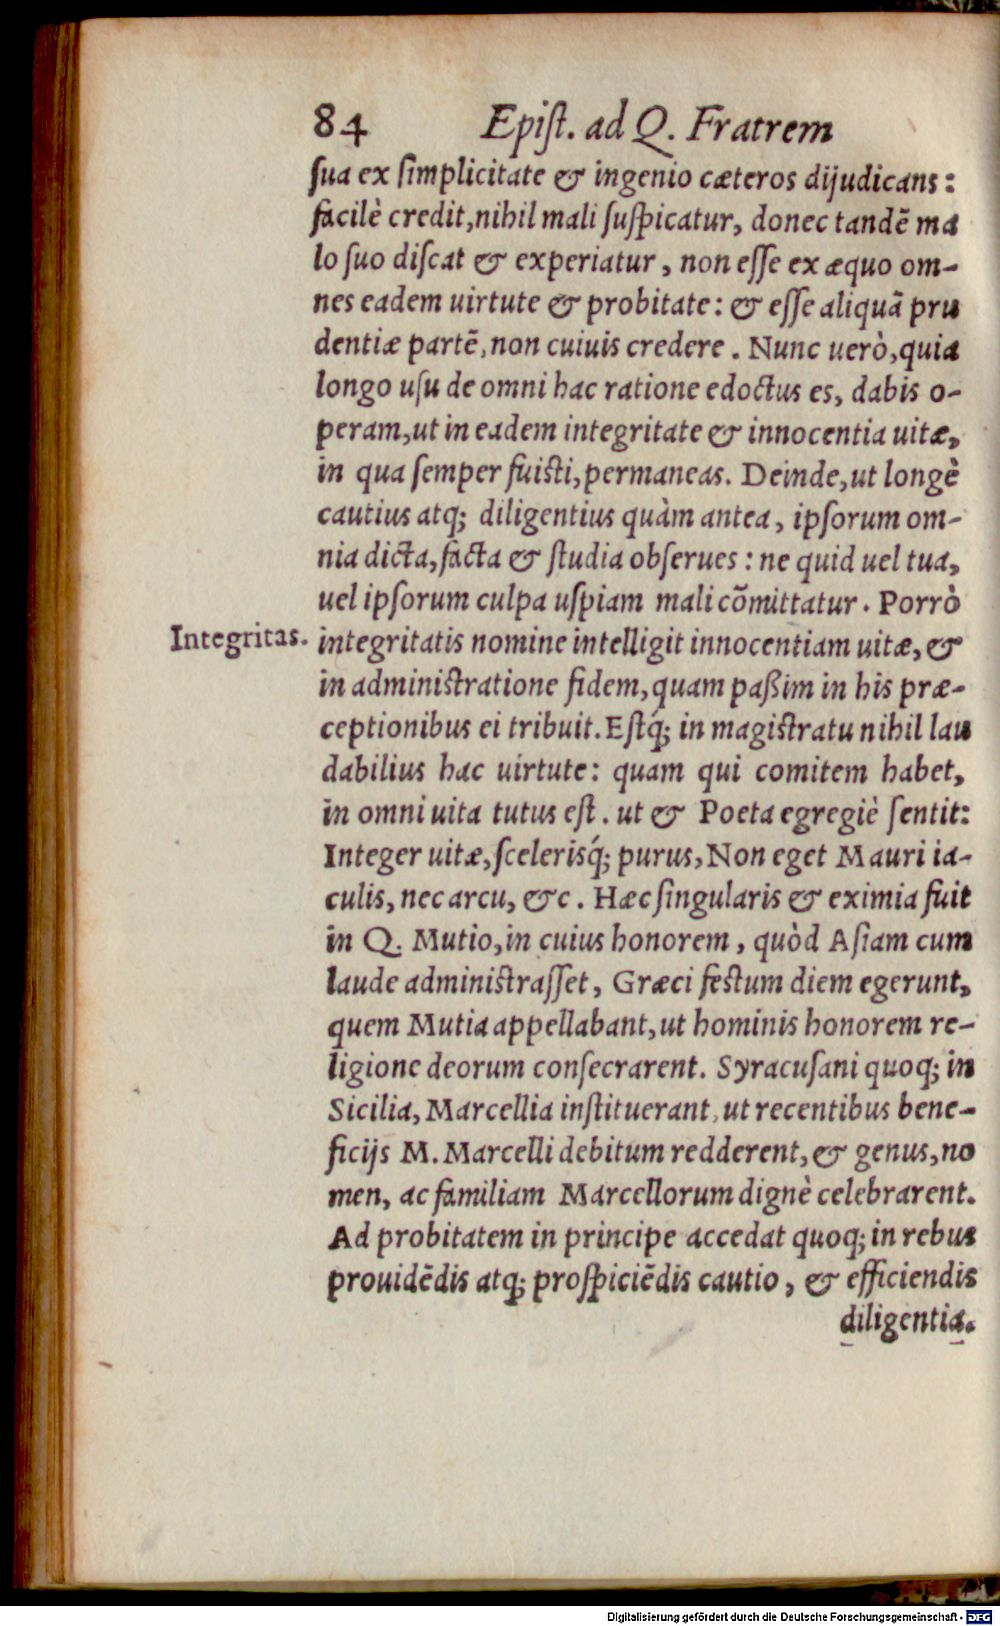 84 Epiſt. ad Q. Fratrem
ſua ex ſimplicitate & ingenio cæteros dijudicans:
facilè credit, nihil mali ſuſpicatur, donec tandē ma
lo ſuo diſcat & experiatur, non eſſe ex æquo om-
nes eadem uirtute & probitate: & eſſe aliquā pru
dentiæ partē, non cuiuis credere. Nunc uerò, quia
longo uſu de omni hac ratione edoctus es, dabis o-
peram, ut in eadem integritate & innocentia uitæ,
in qua ſemper fuiſti, permaneas. Deinde, ut longè
cautius atq; diligentius quàm antea, ipſorum om-
nia dicta, facta & ſtudia obſerues: ne quid uel tua,
uel ipſorum culpa uſpiam mali cōmittatur. Porrò
Integritas. integritatis nomine intelligit innocentiam uitæ, &
in adminiſtratione fidem, quam paßim in his præ-
ceptionibus ei tribuit. Eſtq́; in magiſtratu nihil lau
dabilius hac uirtute: quam qui comitem habet,
in omni uita tutus eſt. ut & Poeta egregiè ſentit:
Integer uitæ, ſceleriſq́; purus, Non eget Mauri ia-
culis, nec arcu, &c. Hæc ſingularis & eximia fuit
in Q. Mutio, in cuius honorem, quòd Aſiam cum
laude adminiſtraſſet, Græci feſtum diem egerunt,
quem Mutia appellabant, ut hominis honorem re-
ligione deorum conſecrarent. Syracuſani quoq; in
Sicilia, Marcellia inſtituerant, ut recentibus bene-
ficijs M. Marcelli debitum redderent, & genus, no
men, ac familiam Marcellorum dignè celebrarent.
Ad probitatem in principe accedat quoq; in rebus
prouidēdis atq; proſpiciēdis cautio, & efficiendis
diligentia.
Digitalisierung gefördert durch die Deutsche Forschungsgemeinschaft - DFG